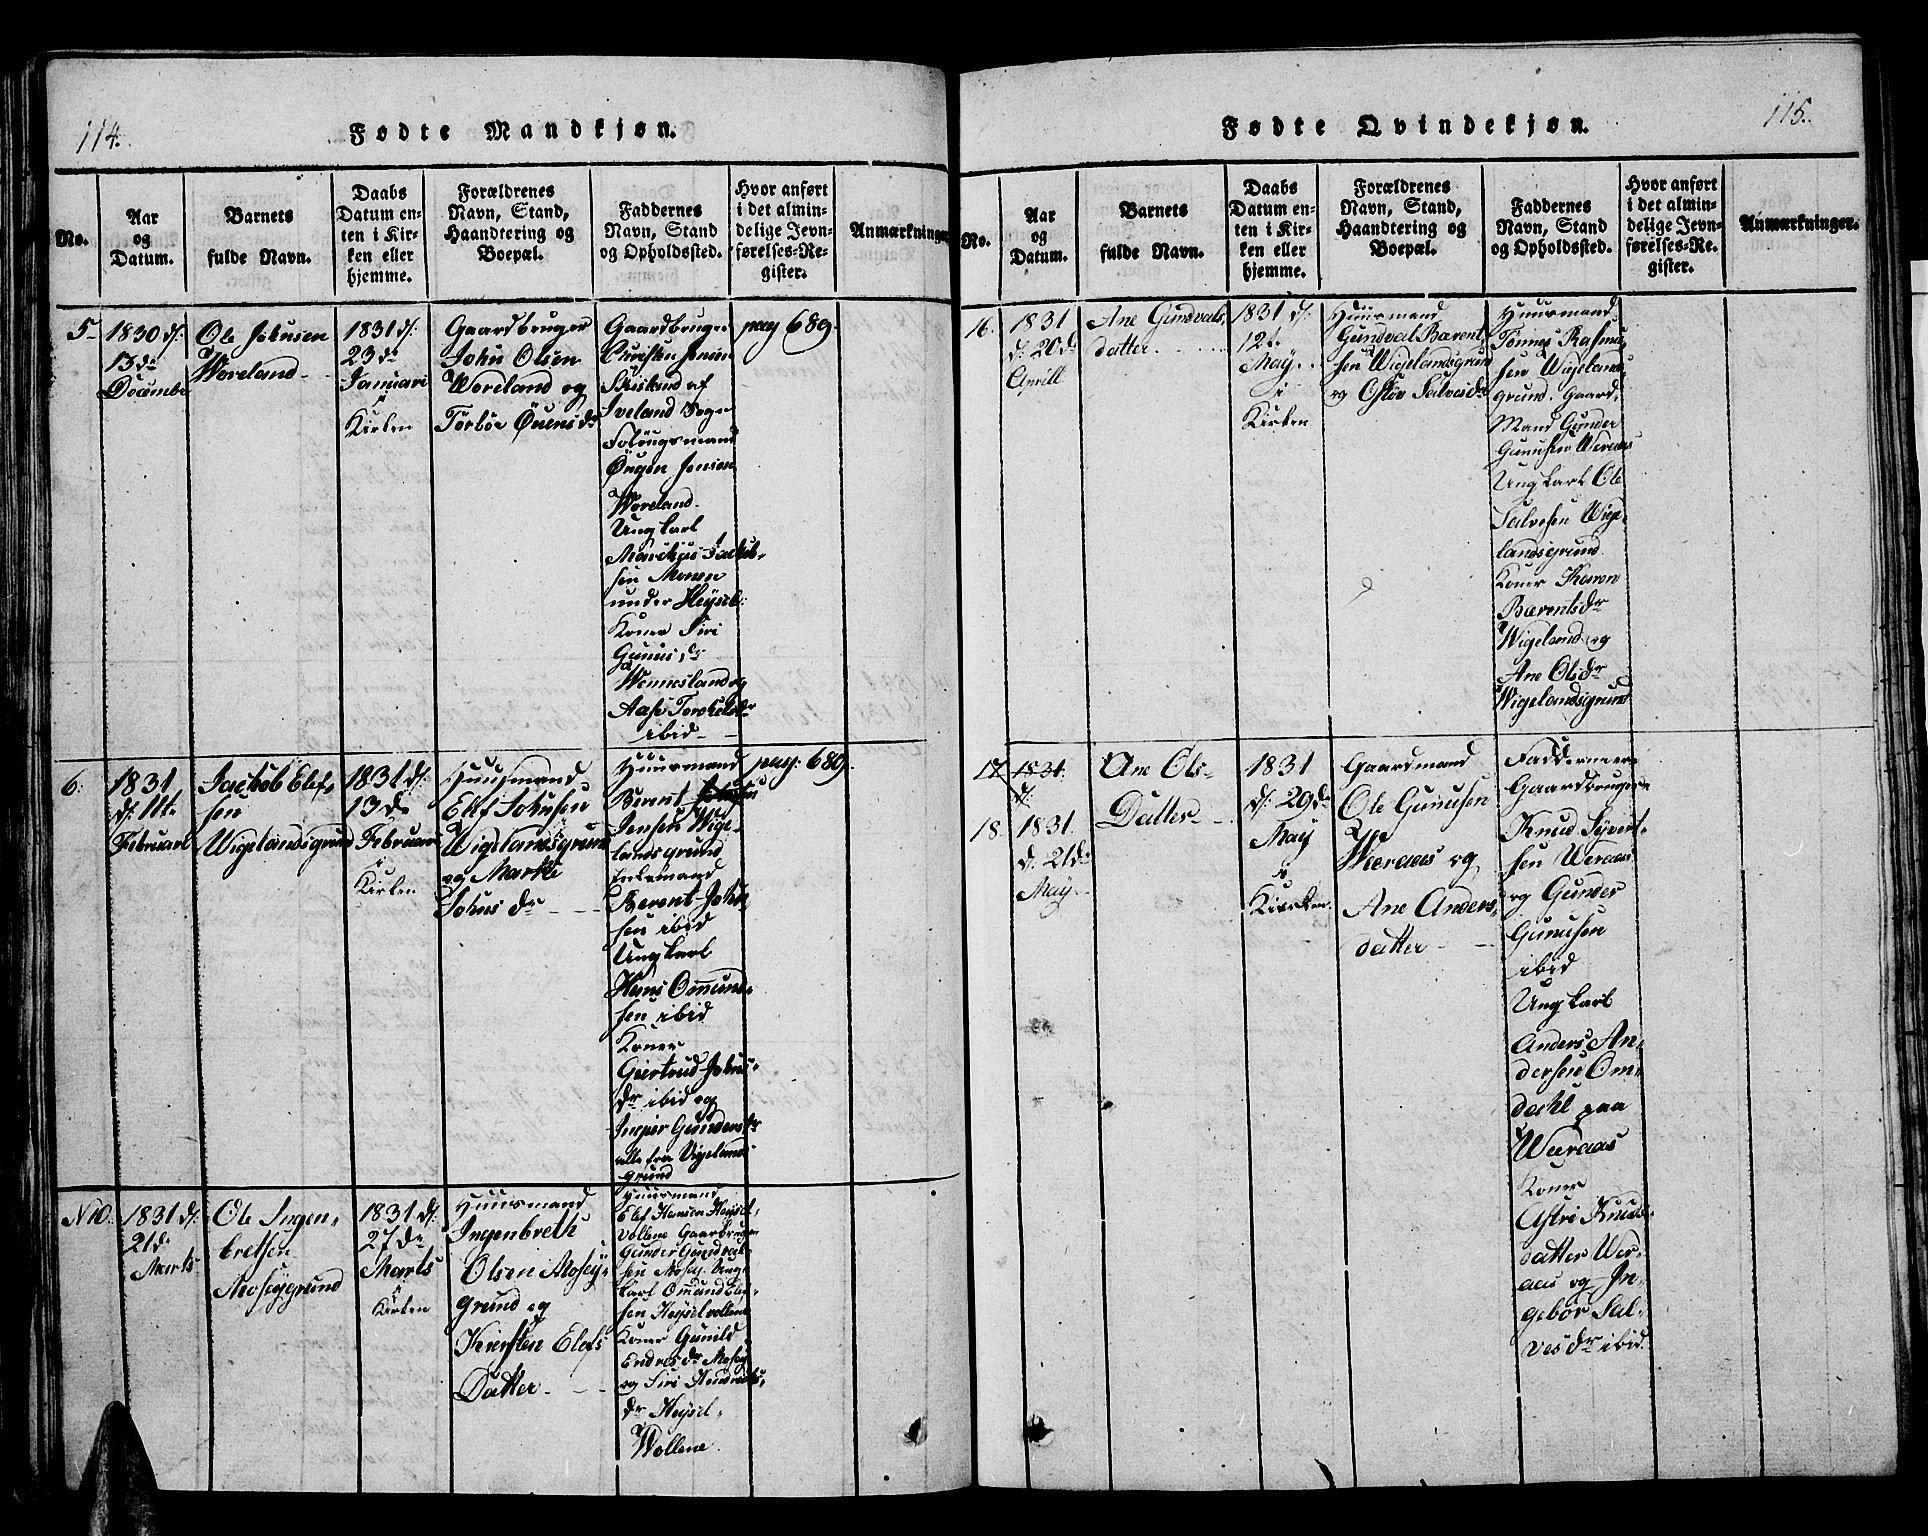 114.
Fødte Mandkjøn.
No.
Aar
og
Datum.
Barnets
fulde Navn.
Daabs
Datum en-
ten i Kir-
ken eller
hjemme.
Forældrenes
Navn, Stand,
Haandtering og
Boepæl.
Faddernes
Navn, Stand
og Opholdssted.
Hvor anført
i det almin-
delige Jevn-
førelses-Re-
gister.
Anmærkninger
5
1830 d:
13de
December
Ole Johnsen
Woreland
1831 d:
23de
Januari
i
Kirken
Gaardbruger
John Olsen
Woreland og
Torbor
Gaardbruger
Christen Jensen
Skisland af
Iveland Sogn
Jensen
Woreland
Ungkarl
Monen
under Heysel:
Koner Siri
Gunus dr
Wennesland og
Aase
ibid
pag 689.
6.
1831
d: 11te
Februari
Jackob Elef-
sen
Wigelandsgrund
1831 d:
13de
Februari
i
Kirken
Huusmand
Elef Johnsen
Wigelandsgrund
og Marte
Johns dr
Huusmand
Berent
Jensen Wige-
landsgrund
Enkemand
Berent John-
sen ibid
Ungkarl
Hans Omund-
sen ibid
Koner
Giertrud Johns-
dr ibid og
Inger Gunders dr
alle fra Vigelands
grund
pag: 689.
N 10.
1831 d:
21de
Marts
Ole Ingen-
bretsen
Moseygrund
1831 d:
27de
Marts
i
Kirken
Huusmand
Ingenbreth
Olsen Mosey-
grund og
Kiersten Elefs
Datter
Huusmand
Elef Hansen Heysel-
vollene Gaardbruger
Gunder Gundval-
sen Mosey. Ung-
karl Omund Elef-
sen Heyselvollene
Koner Gunild
Endres dr Mosey
og Siri
dr Heysel-
Wollene.
115.
Fødte Qvindekjøn.
No.
Aar
og
Datum.
Barnets
fulde Navn.
Daabs
Datum en-
ten i Kir-
ken eller
hjemme.
Forældrenes
Navn, Stand,
Haandtering og
Boepæl.
Faddernes
Navn, Stand
og Opholdssted.
Hvor anført
i det almin-
delige Jevn-
førelses-Re-
gister.
Anmærkninger.
16.
1831
d: 20de
Aprill
Ane Gundvals-
datter
1831 d:
12te
May
i
Kirken
Huusmand
Gundval Bærent-
sen Wigelandsgrund
og Salves dr
Huusmand
Tønnes Rasmu-
sen Wigelands
grund. Gaard-
Mand Gunder
Gunusen Weraas
Ungkarl Ole
Salvesen Wige-
landsgrund
Koner Karen
Bærents dr
Wigeland og
Ane Ols dr
Wigelandsgrund
17
1831.
d:
18.
1831.
d: 21de
May
Ane Ols-
Datter
1831
d: 29de
May
i
Kirken.
Gaardmand
Ole Gunusen
Weraas og
Ane Anders-
datter
Fadderne ere
Gaardbrugere
Knud Syvert-
sen Weraas
og Gunder
Gunusen
ibid
Ungkarl
Anders An-
dersen Om-
dahl paa
Weraas
Koner
Astri Knuds-
datter Wer-
aas og In-
gebor Sal-
ves dr ibid.